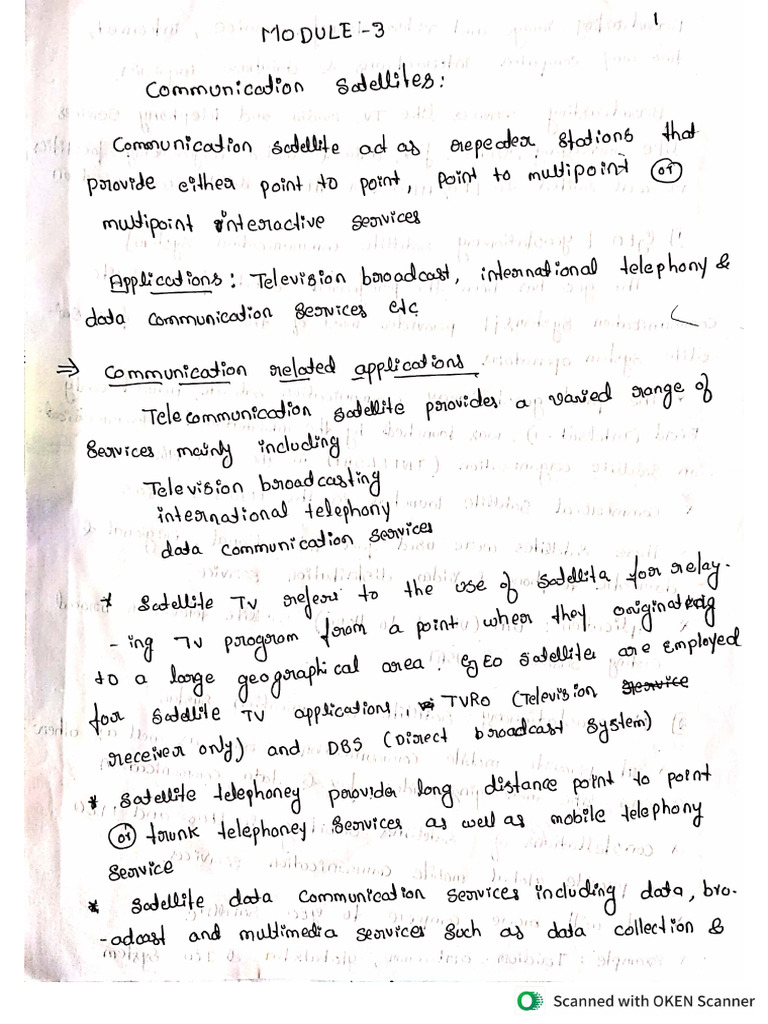 1
MODULE-3
Communication satellites:
Communication satellite act as repeater stations that
provide either point to point, point to multipoint or
multipoint interactive services
Applications: Television broadcast, international telephony &
data communication services etc
⇒ Communication related applications.
Telecommunication satellite provides a varied range of
services mainly including
Television broadcasting
international telephony
data communication services
* Satellite TV refers to the use of satellite for relay-
-ing TV program from a point wher they originating
to a large geographical area. GEO satellites are employed
for satellite TV applications, TVRO (Television service
receiver only) and DBS (Direct broadcast system)
* Satellite telephoney provider long distance point to point
or trunk telephoney services as well as mobile telephony
service
* Satellite data communication services including data, bro-
-adcast and multimedia services such as data collection &
Scanned with OKEN Scanner